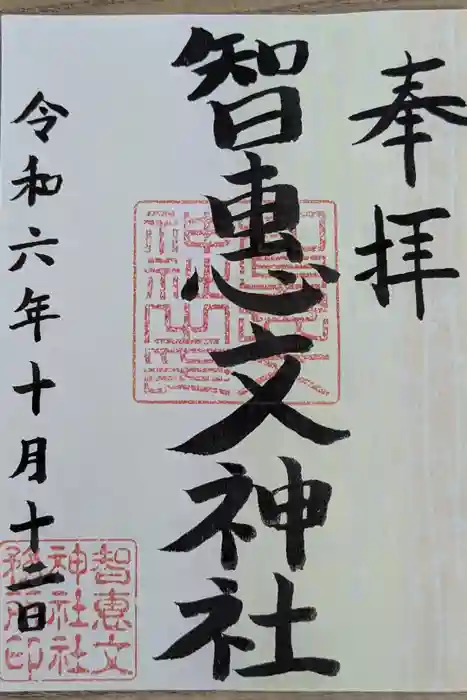 奉拝
智恵文神社
令和六年十月十二日
智恵文
神社社
務所印